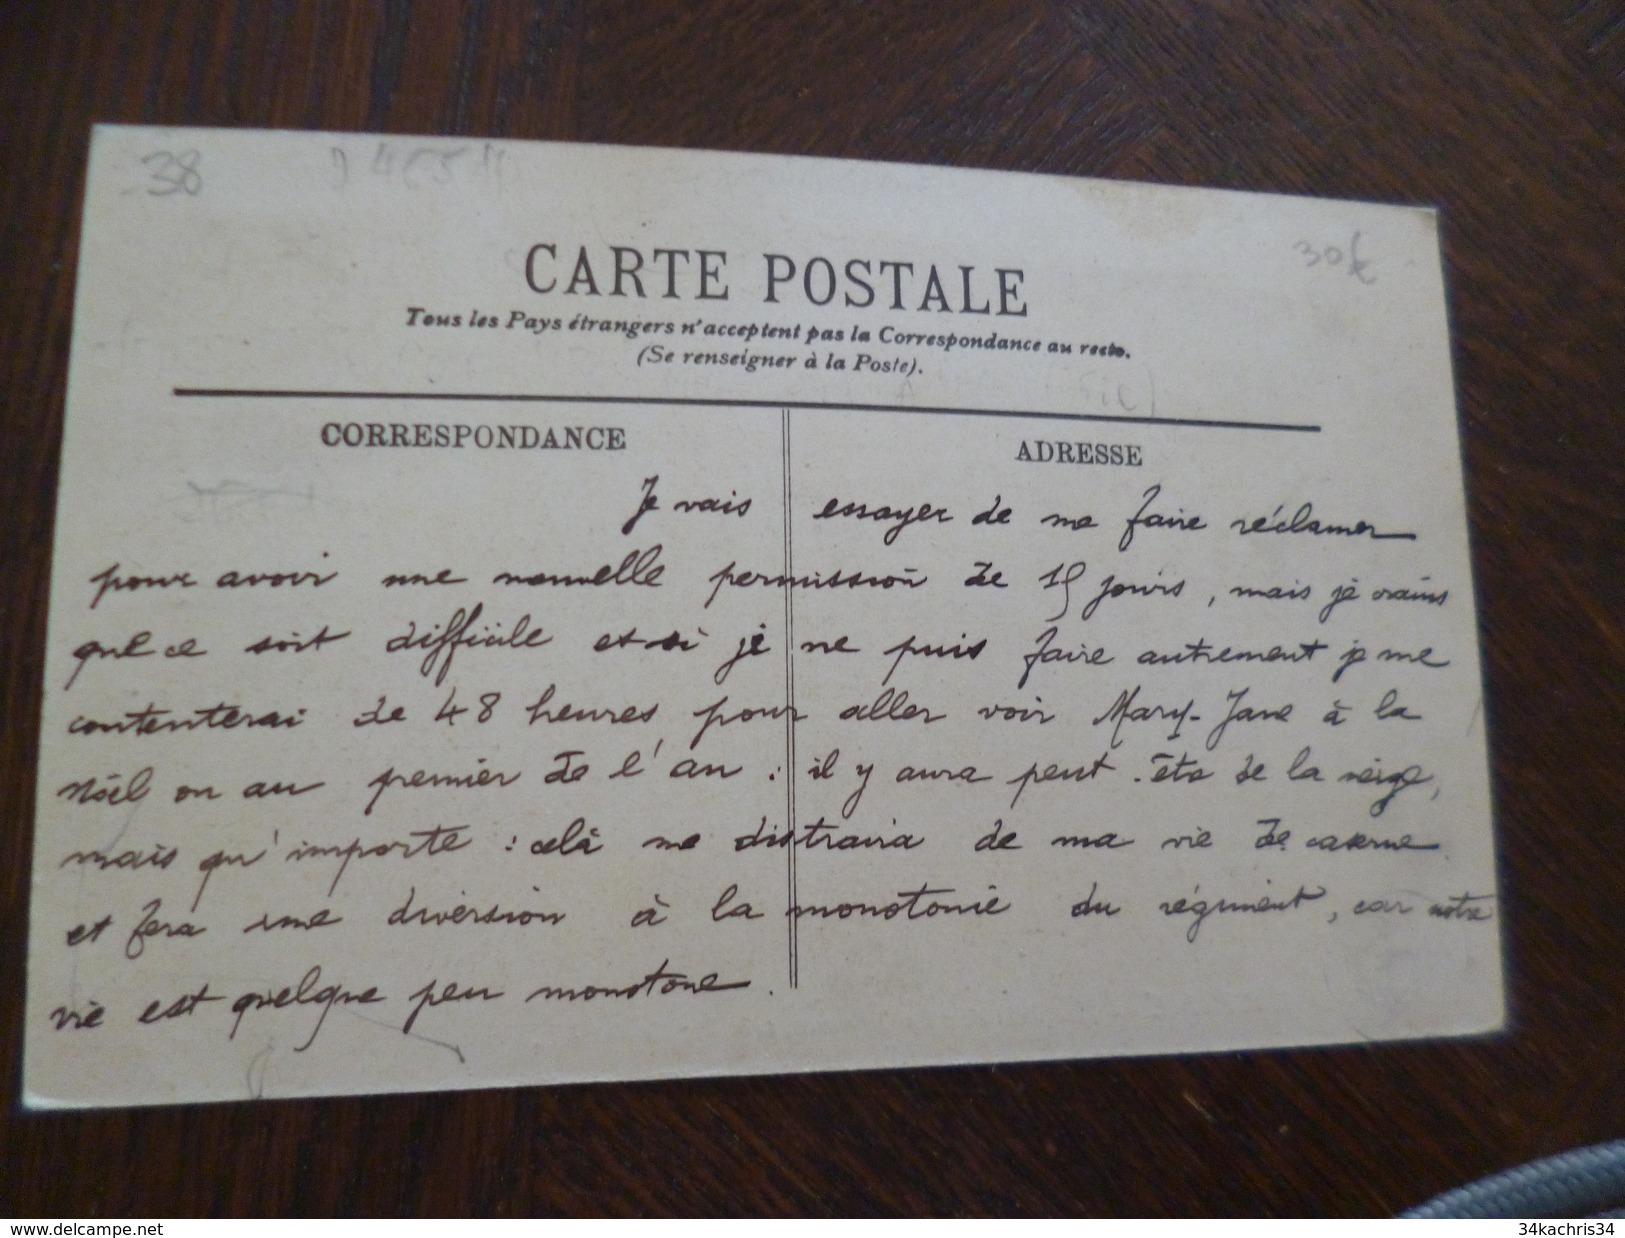 38
30€
CARTE POSTALE
Tous les Pays étrangers n'acceptent pas la Correspondance au recto.
(Se renseigner à la Poste).
CORRESPONDANCE
ADRESSE
Je vais essayer de me faire réclamer
pour avoir une nouvelle permission de 15 jours, mais je crains
que ce soit difficile et si je ne puis faire autrement je me
contenterai de 48 heures, pour aller voir Mary-Jane à la
Nöel ou au premier de l'an : il y aura peut-être de la neige,
mais qu'importe : celà me distraira de ma vie de caserne
et fera une diversion à la monotonie du régiment, car notre
vie est quelque peu monotone.
www.delcampe.net
34kachris34